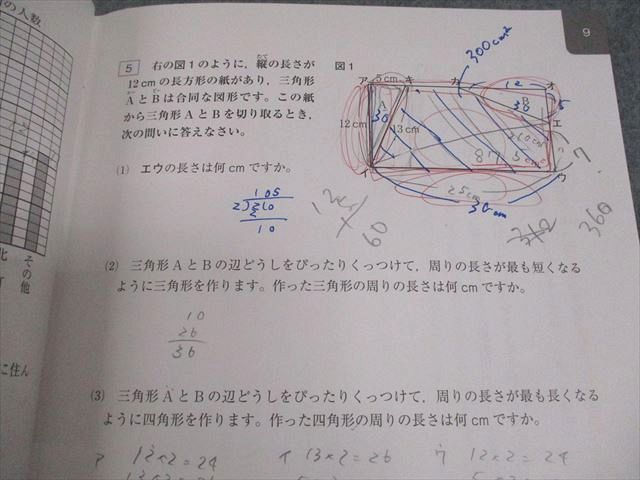 9
の人数
5 右の図1のように，縦の長さが
12cmの長方形の紙があり，三角形
AとBは合同な図形です。この紙
から三角形AとBを切り取るとき，
次の問いに答えなさい。
図1
ア 5cm キ カ 12 オ
300cm²
A B
36 30 5
12cm 13cm エ
イ ウ
25cm
30cm
?
360
(1) エウの長さは何cmですか。
105
2)210
2
10
60
(2) 三角形AとBの辺どうしをぴったりくっつけて，周りの長さが最も短くなる
ように三角形を作ります。作った三角形の周りの長さは何cmですか。
10
26
36
(3) 三角形AとBの辺どうしをぴったりくっつけて，周りの長さが最も長くなる
ように四角形を作ります。作った四角形の周りの長さは何cmですか。
ア 12×2=24 イ 13×2=26 ウ 12×2=24
北
その他
に住ん